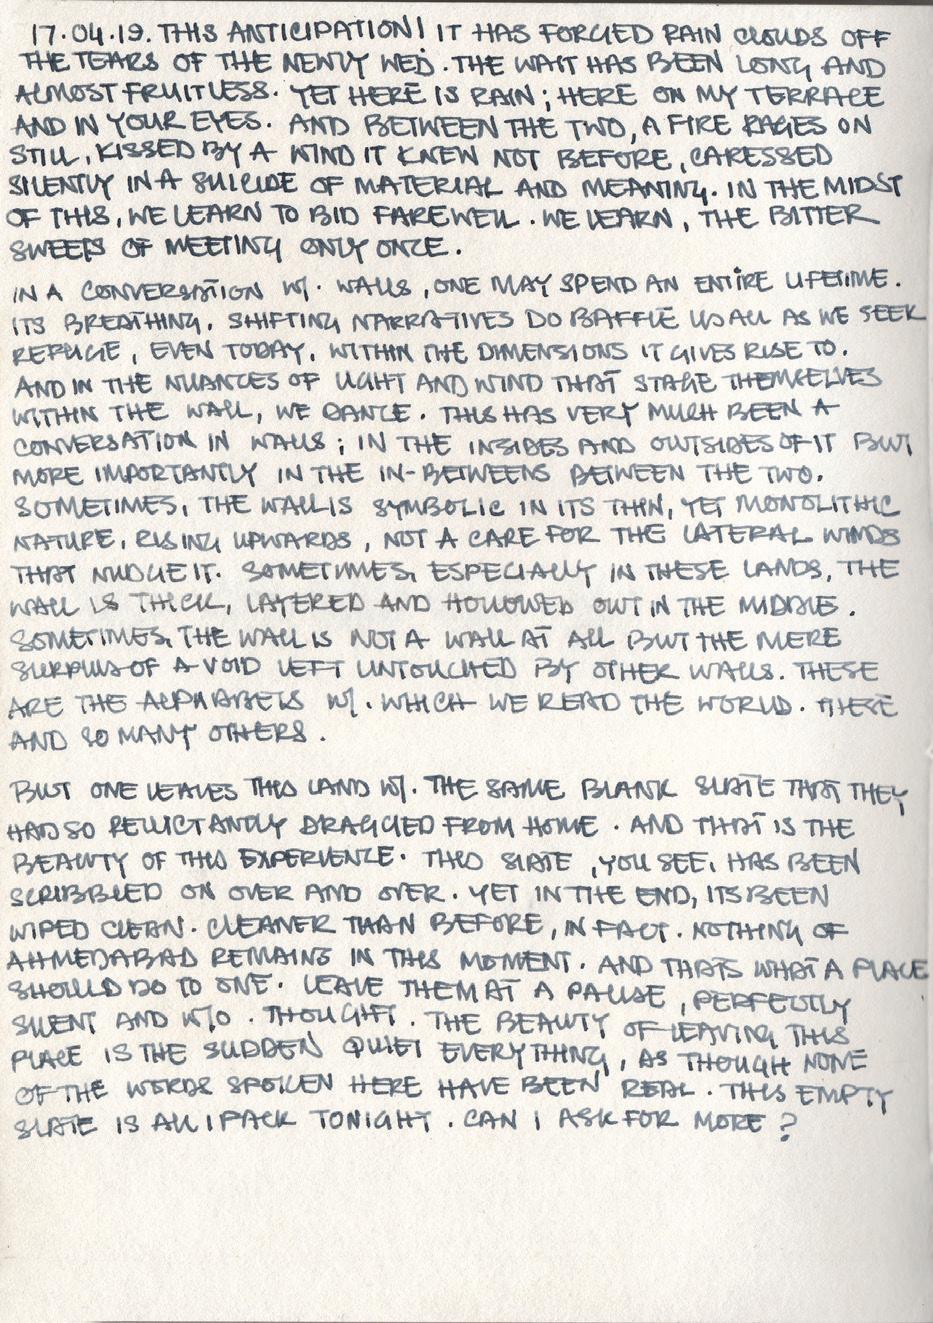 17.04.19. THIS ANTICIPATION! IT HAS FORCED RAIN CLOUDS OFF
THE TEARS OF THE NEWLY WED. THE WAIT HAS BEEN LONG AND
ALMOST FRUITLESS. YET HERE IS RAIN; HERE ON MY TERRACE
AND IN YOUR EYES. AND BETWEEN THE TWO, A FIRE RAGES ON
STILL, KISSED BY A WIND IT KNEW NOT BEFORE, CARESSED
SILENTLY IN A SUICIDE OF MATERIAL AND MEANING. IN THE MIDST
OF THIS, WE LEARN TO BID FAREWELL. WE LEARN, THE BITTER
SWEETS OF MEETING ONLY ONCE.
IN A CONVERSATION W/. WALLS, ONE MAY SPEND AN ENTIRE LIFETIME.
ITS BREATHING, SHIFTING NARRATIVES DO BAFFLE US ALL AS WE SEEK
REFUGE, EVEN TODAY, WITHIN THE DIMENSIONS IT GIVES RISE TO.
AND IN THE NUANCES OF LIGHT AND WIND THAT STAGE THEMSELVES
WITHIN THE WALL, WE DANCE. THIS HAS VERY MUCH BEEN A
CONVERSATION IN WALLS; IN THE INSIDES AND OUTSIDES OF IT BUT
MORE IMPORTANTLY IN THE IN-BETWEENS BETWEEN THE TWO.
SOMETIMES, THE WALL IS SYMBOLIC IN ITS THIN, YET MONOLITHIC
NATURE, RISING UPWARDS, NOT A CARE FOR THE LATERAL WINDS
THAT NUDGE IT. SOMETIMES, ESPECIALLY IN THESE LANDS, THE
WALL IS THICK, LAYERED AND HOLLOWED OUT IN THE MIDDLE.
SOMETIMES, THE WALL IS NOT A WALL AT ALL BUT THE MERE
SURPLUS OF A VOID LEFT UNTOUCHED BY OTHER WALLS. THESE
ARE THE ALPHABETS W/. WHICH WE READ THE WORLD. THESE
AND SO MANY OTHERS.
BUT ONE LEAVES THIS LAND W/. THE SAME BLANK SLATE THAT THEY
HAD SO RELUCTANTLY DRAGGED FROM HOME. AND THAT IS THE
BEAUTY OF THIS EXPERIENCE. THIS SLATE, YOU SEE, HAS BEEN
SCRIBBLED ON OVER AND OVER. YET IN THE END, ITS BEEN
WIPED CLEAN. CLEANER THAN BEFORE, IN FACT. NOTHING OF
AHMEDABAD REMAINS IN THIS MOMENT. AND THATS WHAT A PLACE
SHOULD DO TO ONE. LEAVE THEM AT A PAUSE, PERFECTLY
SILENT AND W/O. THOUGHT. THE BEAUTY OF LEAVING THIS
PLACE IS THE SUDDEN QUIET EVERYTHING, AS THOUGH NONE
OF THE WORDS SPOKEN HERE HAVE BEEN REAL. THIS EMPTY
SLATE IS ALL I PACK TONIGHT. CAN I ASK FOR MORE?